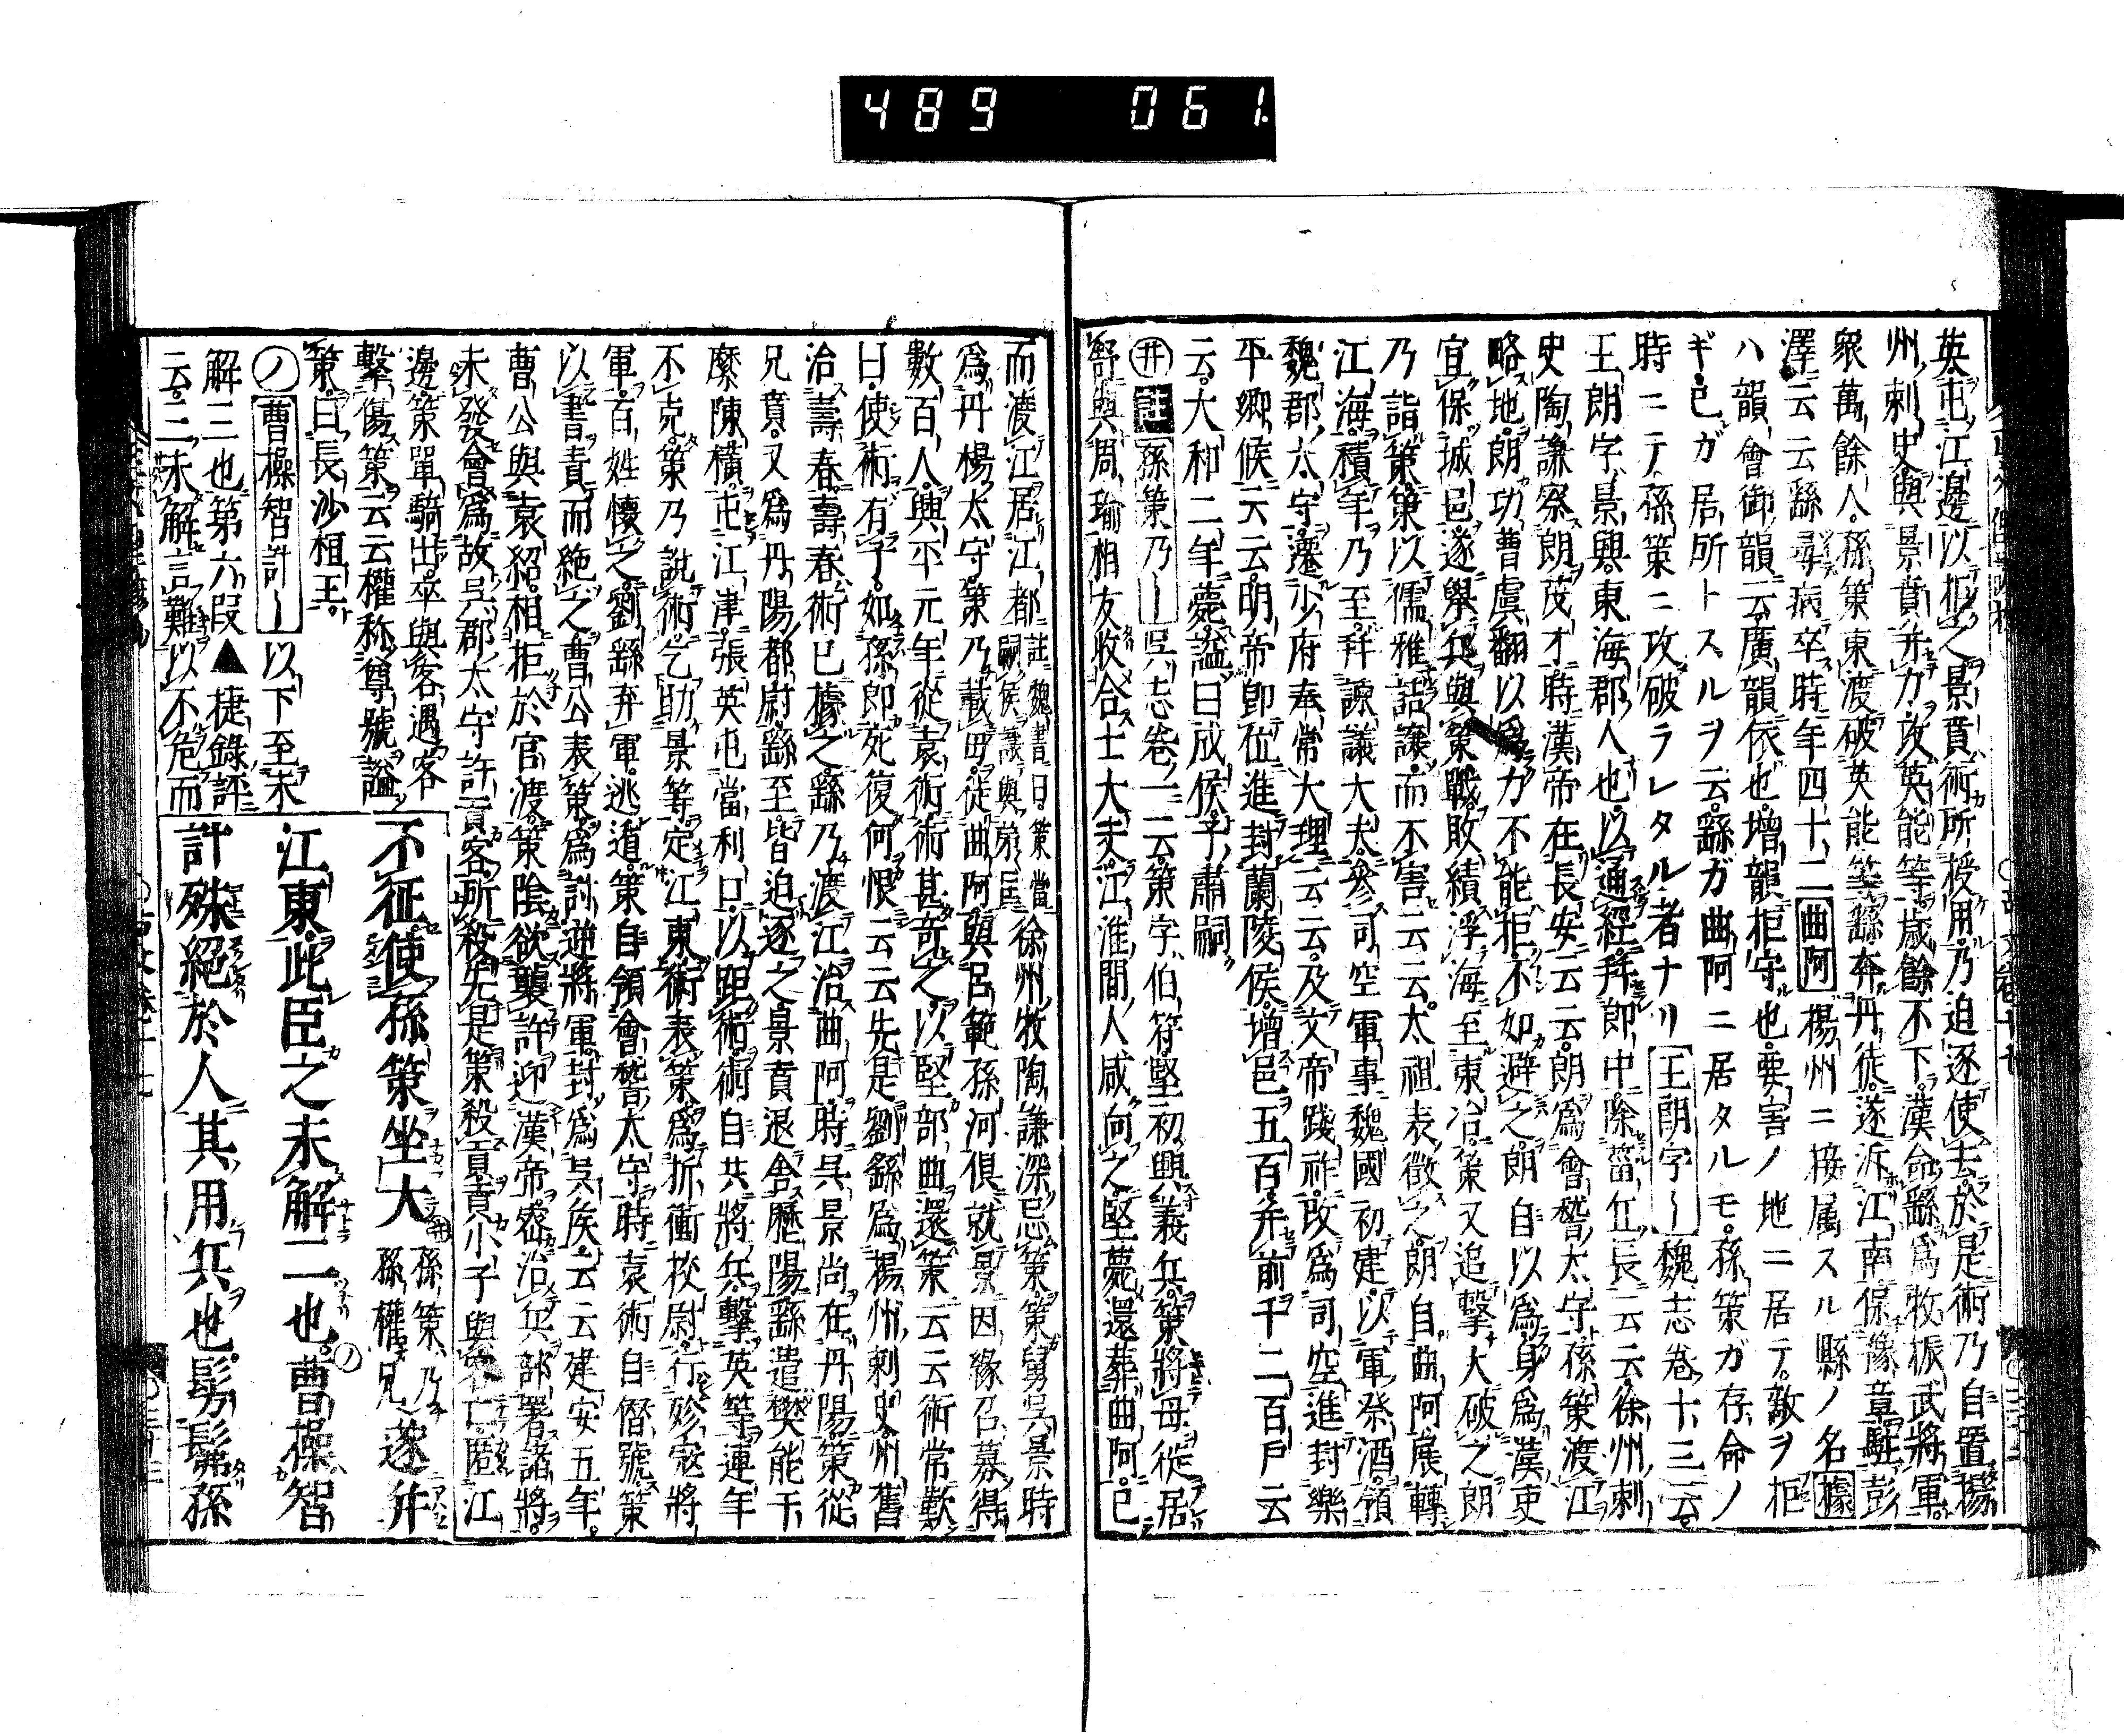 489 061.
英屯江邊以柜之景賁術所授用乃迫逐使去於是術乃自置楊
州刺史與景賁并力攻英能等歲餘不下漢命繇爲牧振武將軍
衆萬餘人孫策東渡破英能等繇奔丹徒遂泝江南保豫章駐彭
澤云云繇尋病卒時年四十二曲阿楊州ニ接属スル縣ノ名據
ハ韻會御韻云廣韻依也增韻柜守也要害ノ地ニ居テ敵ヲ柜
ギ已ガ居所トスルヲ云繇ガ曲阿ニ居タルモ孫策ガ存命ノ
時ニテ孫策ニ攻破ラレタル者ナリ王朗字〡魏志卷十三云
王朗字景興東海郡人也以通經拜郎中除菑丘長云云徐州刺
史陶謙察朗茂才時漢帝在長安云云朗爲會稽太守孫策渡江
略地朗功曹虞翻以爲力不能拒不如避之朗自以爲身爲漢吏
宜保城邑遂擧兵與策戰敗績浮海至東冶策又追擊大破之朗
乃詣策策以儒雅詰讓而不害云云太祖表徵之朗自曲阿展轉
江海積年乃至拜諫議大夫參司空軍事魏國初建以軍祭酒領
魏郡太守遷少府奉常大理云云及文帝踐祚改爲司空進封樂
平郷侯云云明帝即位進封蘭陵侯增邑五百并前千二百戸云
云大和二年薨謚曰成侯子肅嗣
廾註孫策乃〡呉志卷一云策字伯符堅初興義兵策將母從居
舒與周瑜相友收合士大夫江淮間人咸向之堅薨還葬曲阿已
而渡江居江都註魏書曰策當嗣侯讓與弟匡徐州牧陶謙深忌策策舅呉景時
爲丹楊太守策乃載母從曲阿與呂範孫河倶就景因緣召募得
數百人興平元年從袁術術甚奇之以堅部曲還策云云術常歎
曰使術有子如孫郎死復何恨云云先是劉繇爲楊州刺史州舊
治壽春壽春術已據之繇乃渡江治曲阿時呉景尚在丹陽策從
兄賁又爲丹陽都尉繇至皆迫逐之景賁退舍歷陽繇遣樊能于
麋陳横屯江津張英屯當利口以距術術自共將兵擊英等連年
不克策乃說術乞助景等定江東術表策爲折衝校尉行殄寇將
軍百姓懷之劉繇弃軍逃遁策自領會稽太守時袁術自僭號策
以書責而絶之曹公表策爲討逆將軍封爲呉侯云云建安五年
曹公與袁紹相拒於官渡策陰欲襲許迎漢帝密治兵部署諸將
未發會爲故呉郡太守許貢客所殺先是策殺貢貢小子與客亡匿江
邊策單騎出卒與客遇客
擊傷策云云權称尊號謚
策曰長沙桓王
ノ曹操智計〡以下至末
解三也第六段▲捷錄評
云二未解言難以不危而
不征使孫策坐大廾孫策乃孫權兄遂并
江東此臣之未解二也ノ曹操智
計殊絕於人其用兵也髣髴孫